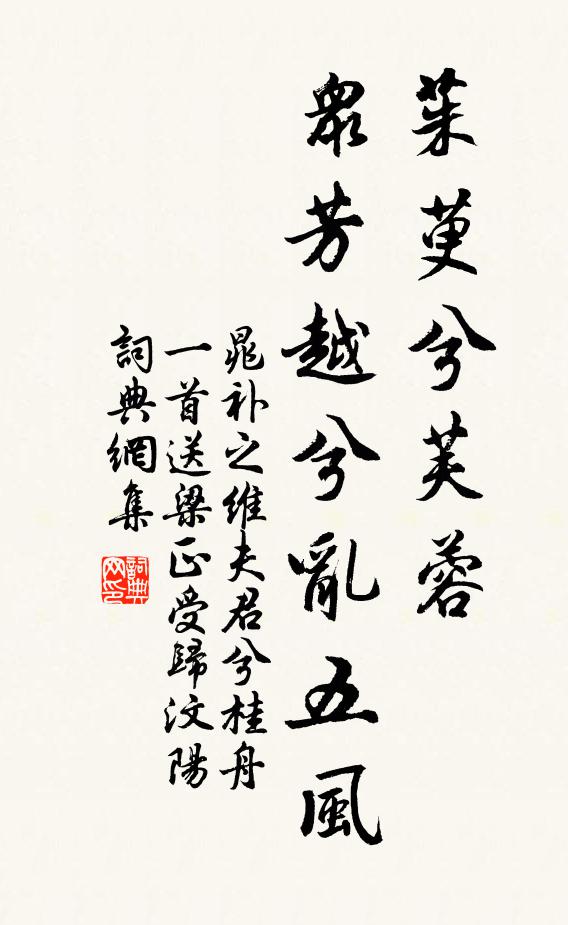 茱萸兮芙蓉
眾芳越兮亂五風
晁补之維夫君兮桂舟
一首送梁正受歸汶陽
詞典網集
詞典
网印